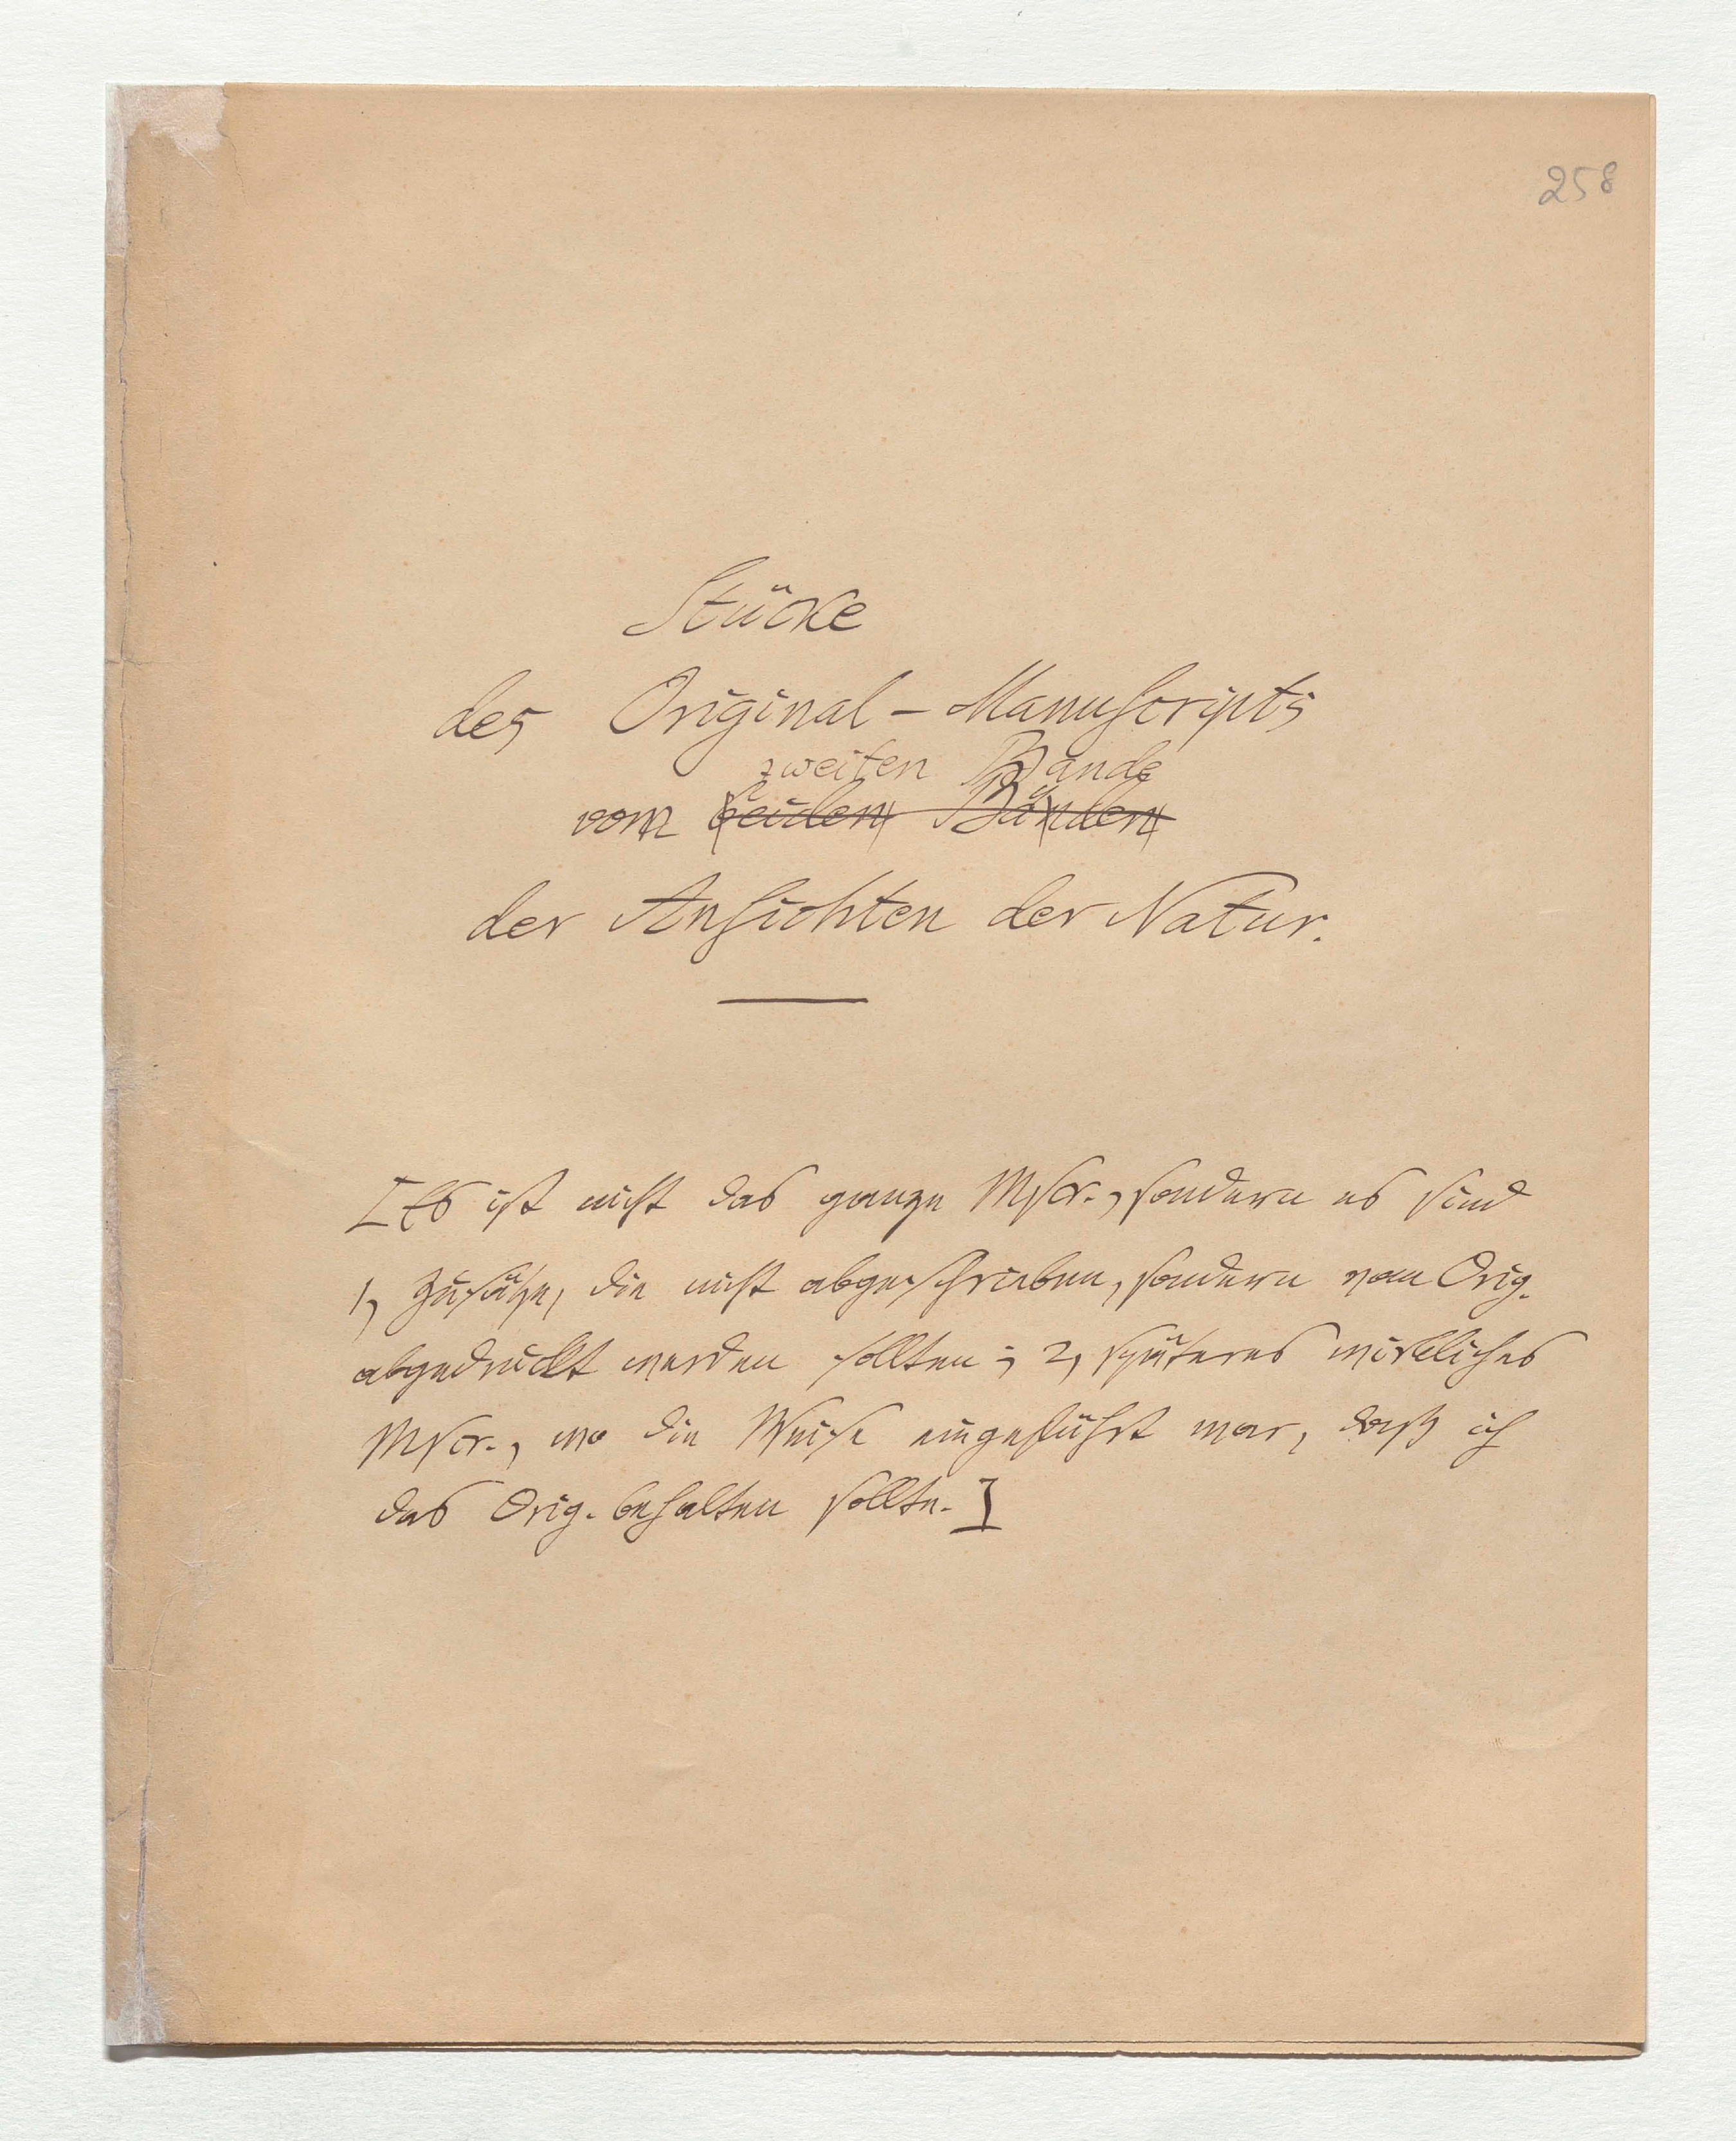 258
Stücke
des Original-Manuscripts
zweiten Bande
vom beiden Bänden
der Ansichten der Natur.
[Es ist nicht das ganze Mscr., sondern es sind
1, Zusätze, die nicht abgeschrieben, sondern vom Orig.
abgedruckt werden sollten; 2, späteres wirkliches
Mscr., wo die Weise eingeführt war, daß ich
das Orig. behalten sollte.]